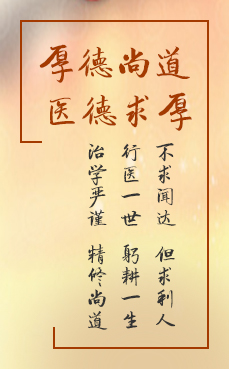 厚德尚道
医德求厚
不求闻达 但求利人
行医一世 躬耕一生
治学严谨 精修尚道